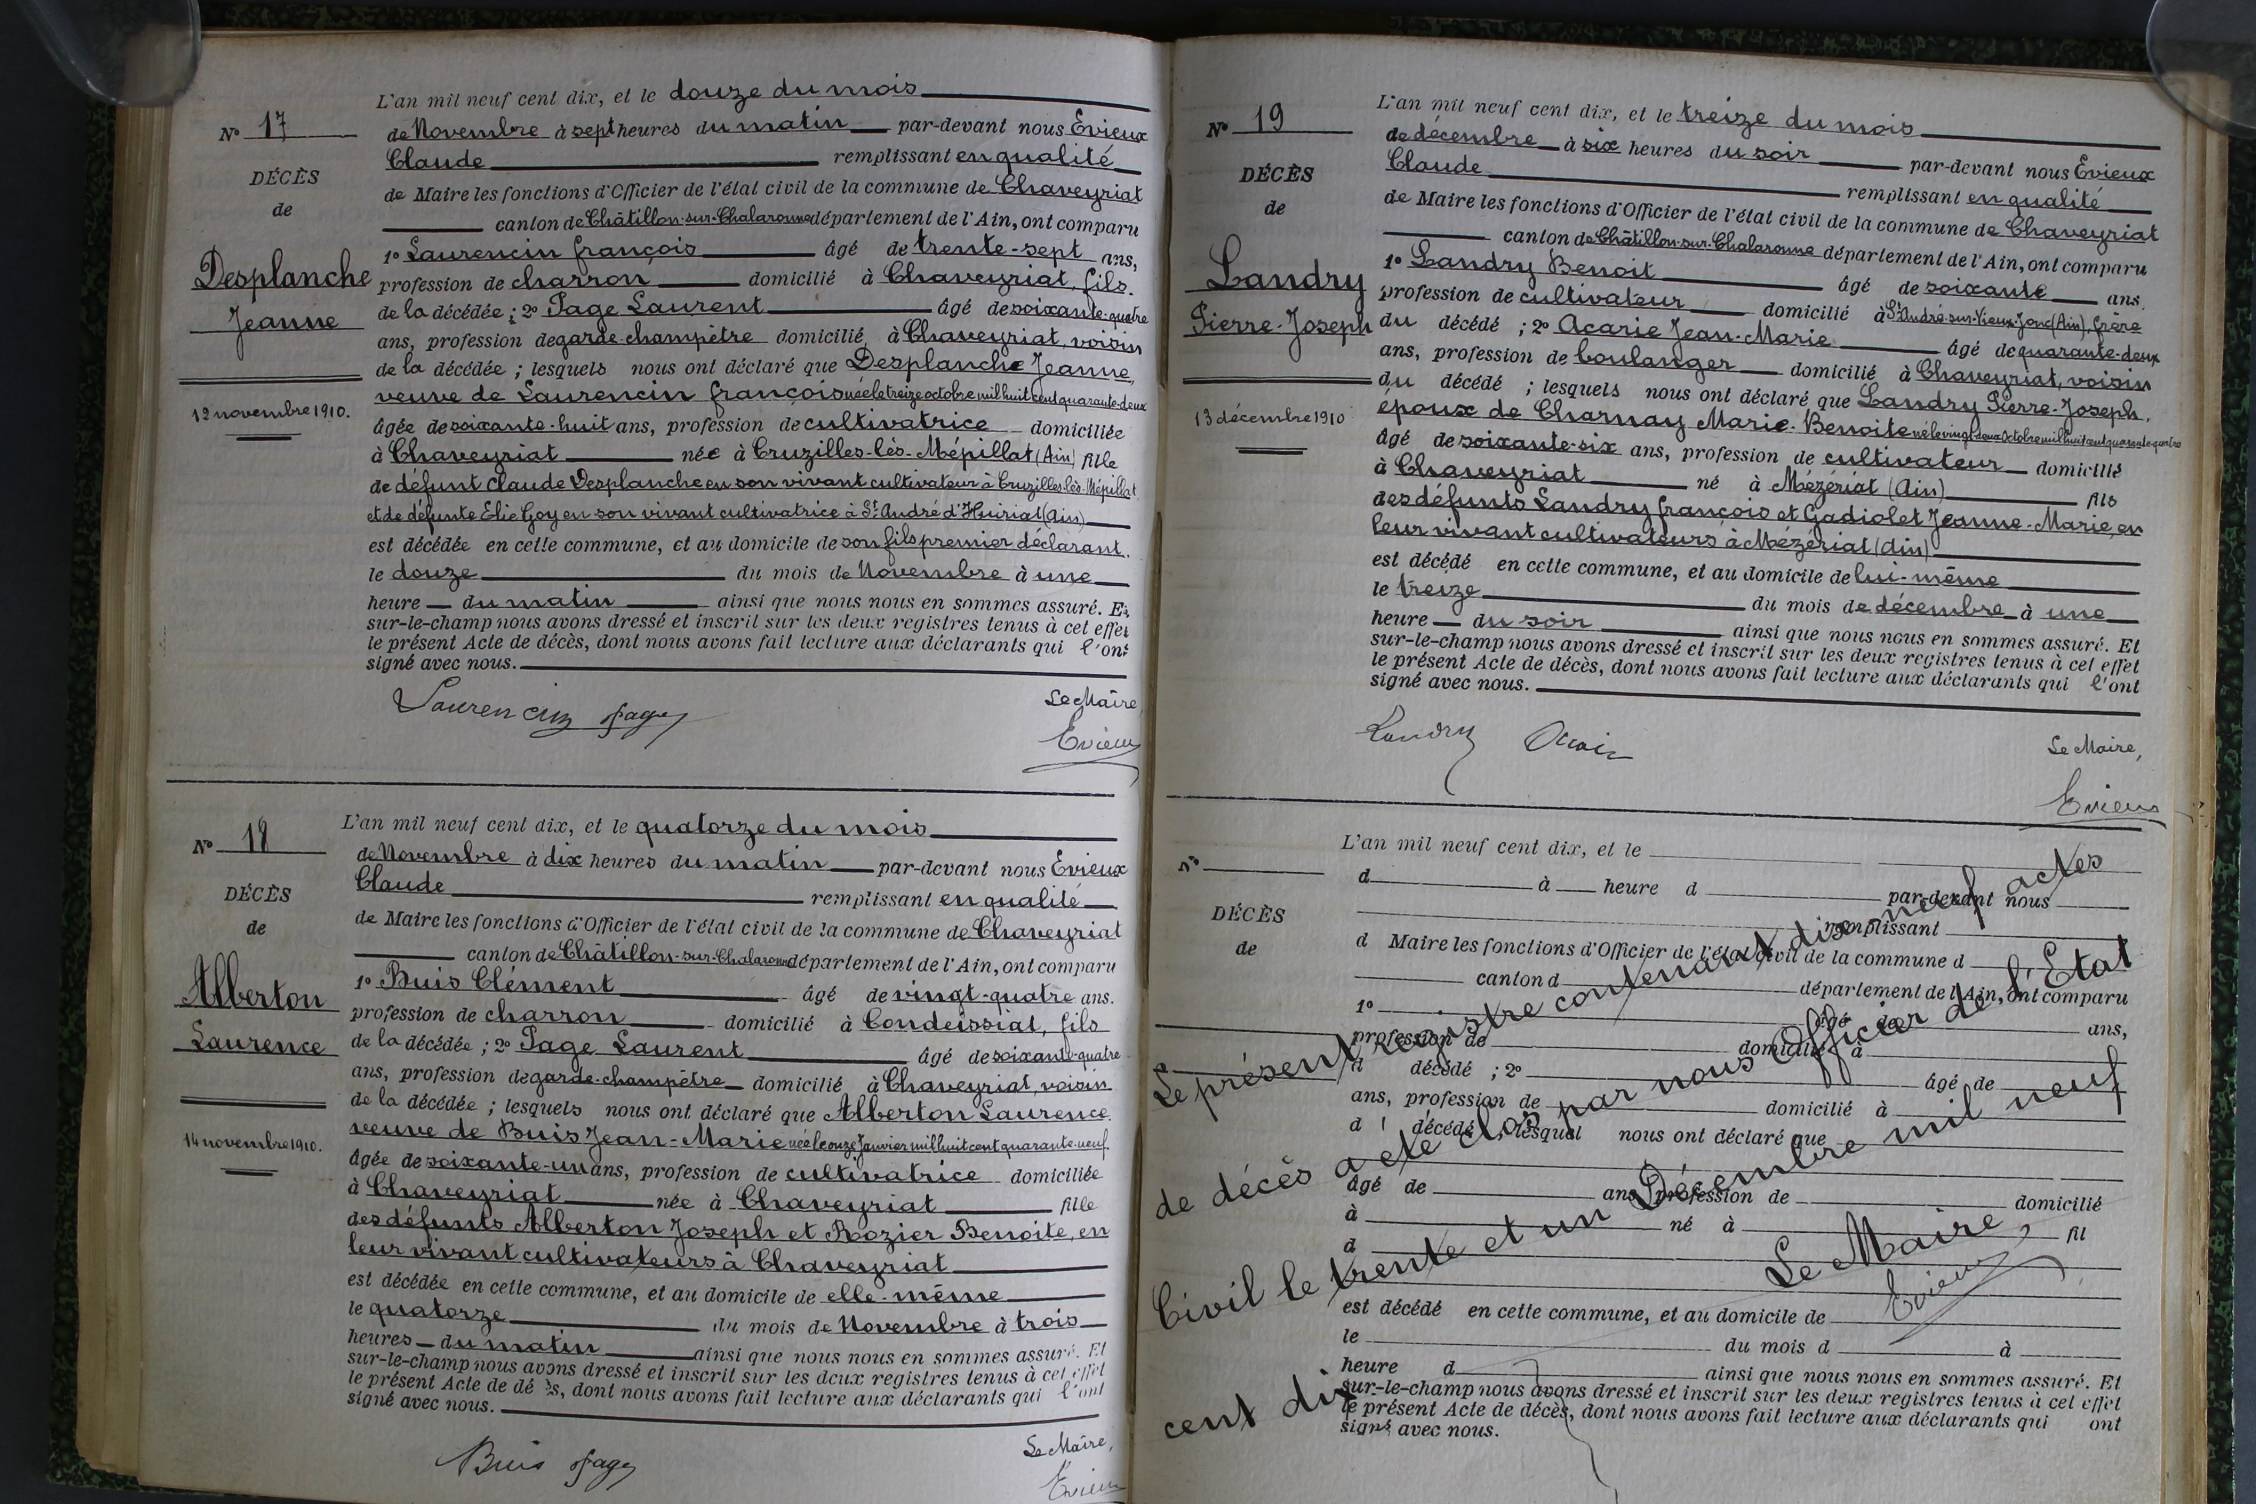 L'an mil neuf cent dix, et le douze du mois
N° 17
de Novembre à sept heures du matin par-devant nous Evieux
Claude remplissant en qualité
DÉCÈS
de Maire les fonctions d'Officier de l'état civil de la commune de Chaveyriat
de
canton de Châtillon-sur-Chalaronne département de l'Ain, ont comparu
1° Laurencin françois âgé de trente-sept ans,
Desplanche
profession de charron domicilié à Chaveyriat, fils
de la décédée ; 2° Page Laurent âgé de soixante-quatre
Jeanne
ans, profession de garde-champêtre domicilié à Chaveyriat, voisin
de la décédée ; lesquels nous ont déclaré que Desplanche Jeanne,
veuve de Laurencin françois née le treize octobre mil huit cent quarante-deux
12 novembre 1910.
âgée de soixante-huit ans, profession de cultivatrice domiciliée
à Chaveyriat née à Cruzilles-lès-Mépillat (Ain) fille
de défunt Claude Desplanche en son vivant cultivateur à Cruzilles-lès-Mépillat
et de défunte Elie Goy en son vivant cultivatrice à St André d'Huiriat (Ain)
est décédée en cette commune, et au domicile de son fils premier déclarant.
le douze du mois de Novembre à une
heure du matin ainsi que nous nous en sommes assuré. Et
sur-le-champ nous avons dressé et inscrit sur les deux registres tenus à cet effet
le présent Acte de décès, dont nous avons fait lecture aux déclarants qui l'ont
signé avec nous.
Laurencin Page
Le Maire,
Evieux
L'an mil neuf cent dix, et le quatorze du mois
N° 18
de Novembre à dix heures du matin par-devant nous Evieux
Claude remplissant en qualité
DÉCÈS
de Maire les fonctions d'Officier de l'état civil de la commune de Chaveyriat
de
canton de Châtillon-sur-Chalaronne département de l'Ain, ont comparu
1° Buis Clément âgé de vingt-quatre ans.
Alberton
profession de charron domicilié à Condeissiat, fils
Laurence
de la décédée ; 2° Page Laurent âgé de soixante-quatre
ans, profession de garde-champêtre domicilié à Chaveyriat, voisin
de la décédée ; lesquels nous ont déclaré que Alberton Laurence
veuve de Buis Jean-Marie née le onze Janvier mil huit cent quarante-neuf
14 novembre 1910.
âgée de soixante-un ans, profession de cultivatrice domiciliée
à Chaveyriat née à Chaveyriat fille
des défunts Alberton Joseph et Rozier Benoite, en
leur vivant cultivateurs à Chaveyriat
est décédée en cette commune, et au domicile de elle-même
le quatorze du mois de Novembre à trois
heures du matin ainsi que nous nous en sommes assuré. Et
sur-le-champ nous avons dressé et inscrit sur les deux registres tenus à cet effet
le présent Acte de décès, dont nous avons fait lecture aux déclarants qui l'ont
signé avec nous.
Buis Page
Le Maire,
Evieux
L'an mil neuf cent dix, et le treize du mois
N° 19
de décembre à six heures du soir par-devant nous Evieux
Claude remplissant en qualité
DÉCÈS
de Maire les fonctions d'Officier de l'état civil de la commune de Chaveyriat
de
canton de Châtillon-sur-Chalaronne département de l'Ain, ont comparu
1° Landry Benoit âgé de soixante ans.
Landry
profession de cultivateur domicilié à St André-sur-Vieux-Jonc (Ain), frère
Pierre-Joseph
du décédé ; 2° Acarie Jean-Marie âgé de quarante-deux
ans, profession de boulanger domicilié à Chaveyriat, voisin
du décédé ; lesquels nous ont déclaré que Landry Pierre-Joseph,
13 décembre 1910
époux de Charnay Marie-Benoite né le vingt-deux Octobre mil huit cent quarante-quatre
âgé de soixante-six ans, profession de cultivateur domicilié
à Chaveyriat né à Mézériat (Ain) fils
des défunts Landry françois et Gadiolet Jeanne-Marie, en
leur vivant cultivateurs à Mézériat (Ain)
est décédé en cette commune, et au domicile de lui-même
le treize du mois de décembre à une
heure du soir ainsi que nous nous en sommes assuré. Et
sur-le-champ nous avons dressé et inscrit sur les deux registres tenus à cet effet
le présent Acte de décès, dont nous avons fait lecture aux déclarants qui l'ont
signé avec nous.
Landry
Le Maire,
Evieux
L'an mil neuf cent dix, et le
N°
d à heure d par-devant nous
remplissant
DÉCÈS
d Maire les fonctions d'Officier de l'état civil de la commune d
de
canton d département de l'Ain, ont comparu
1° âgé de ans,
profession de domicilié à
d décédé ; 2° âgé de
ans, profession de domicilié à
d décédé ; lesquel nous ont déclaré que
âgé de ans, profession de domicilié
à né à fil
d
est décédé en cette commune, et au domicile de
le du mois d à
heure d ainsi que nous nous en sommes assuré. Et
sur-le-champ nous avons dressé et inscrit sur les deux registres tenus à cet effet
le présent Acte de décès, dont nous avons fait lecture aux déclarants qui ont
signé avec nous.
Le présent registre contenant dix-neuf actes
de décès a été clos par nous Officier de l'Etat
Civil le trente et un Décembre mil neuf
cent dix
Le Maire,
Evieux